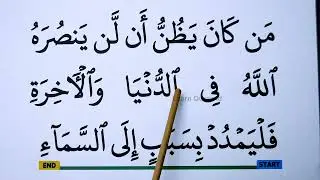 مَن كَانَ يَظُنُّ أَن لَّن يَنصُرَهُ
ٱللَّهُ فِي ٱلدُّنْيَا وَٱلْأَخِرَةِ
فَلْيَمْدُدْ بِسَبَبٍ إِلَى ٱلسَّمَآءِ
END START